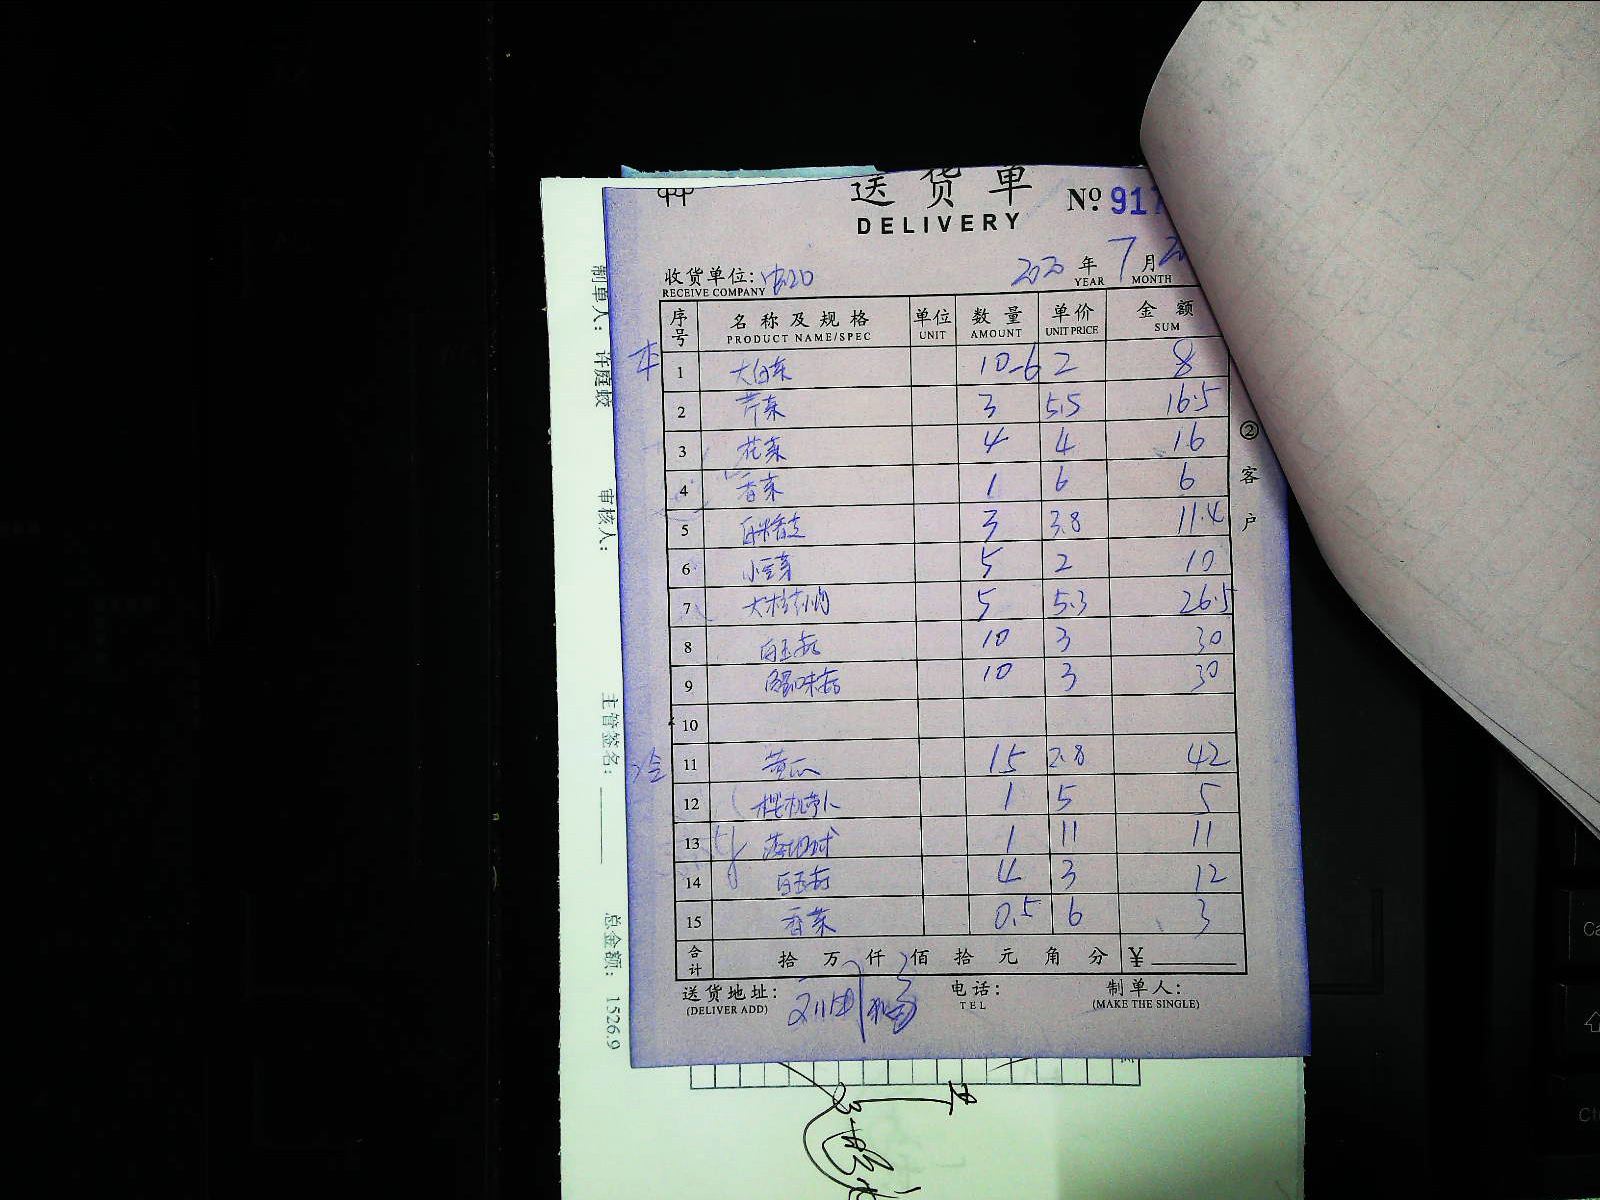 送货单
DELIVERY
№ 917
收货单位:
RECEIVE COMPANY
2020 年 7 月 2
YEAR MONTH
序号 名称及规格 单位 数量 单价 金额
PRODUCT NAME/SPEC UNIT AMOUNT UNIT PRICE SUM
本 1 大白菜 10-6 2 8
2 芹菜 3 5.5 16.5
3 花菜 4 4 16
4 香菜 1 6 6
5 3 3.8 11.4
6 小豆芽 5 2 10
7 5 5.3 26.5
8 白玉菇 10 3 30
9 蟹味菇 10 3 30
10
冷 11 黄瓜 15 2.8 42
12 樱桃萝卜 1 5 5
13 1 11 11
14 白玉菇 4 3 12
15 香菜 0.5 6 3
合计 拾 万 仟 佰 拾 元 角 分 ¥
送货地址: 电话: 制单人:
(DELIVER ADD) TEL (MAKE THE SINGLE)
②客户
制单人: 许庭蛟
审核人:
主管签名:
总金额: 1526.9